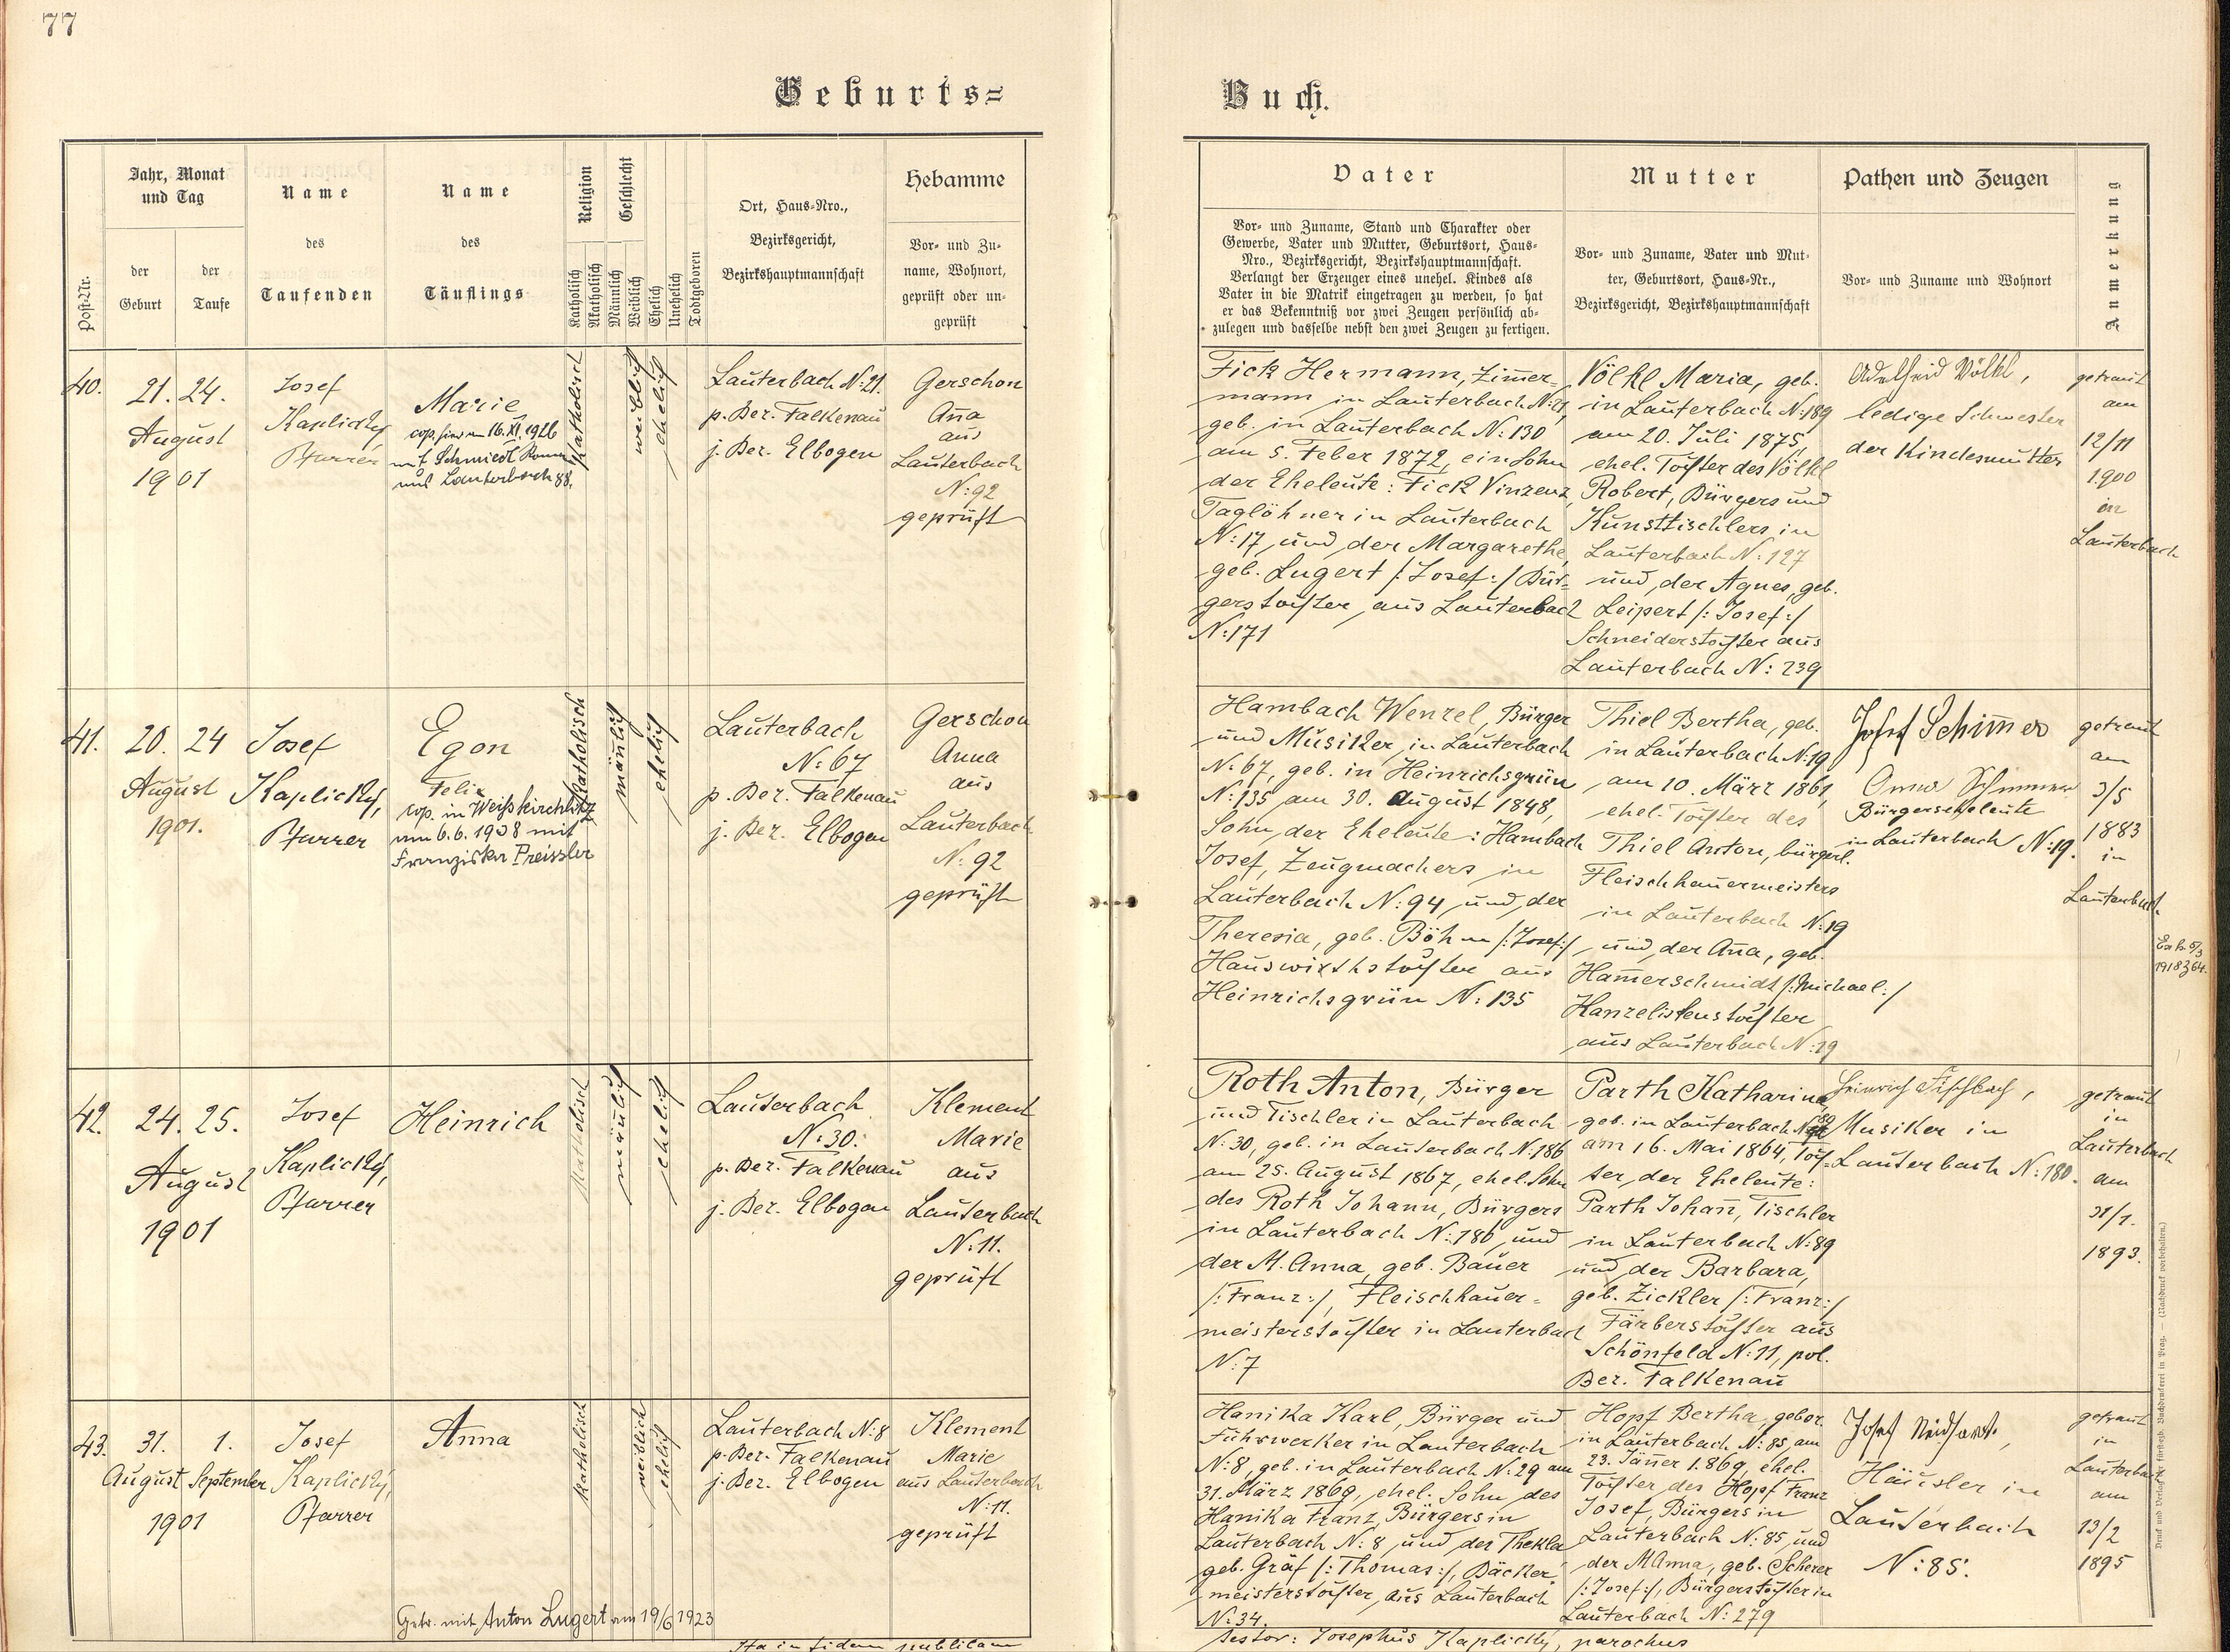 77
Geburts=
Buch.
Post-Nr.
Jahr, Monat
und Tag
der
Geburt
der
Taufe
Name
des
Taufenden
Name
des
Täuflings
Religion
Katholisch
Akatholisch
Geschlecht
Männlich
Weiblich
Ehelich
Unehelich
Todtgeboren
Ort, Haus-Nro.,
Bezirksgericht,
Bezirkshauptmannschaft
Hebamme
Vor- und Zu-
name, Wohnort,
geprüft oder un-
geprüft
Vater
Vor- und Zuname, Stand und Charakter oder
Gewerbe, Vater und Mutter, Geburtsort, Haus-
Nro., Bezirksgericht, Bezirkshauptmannschaft.
Verlangt der Erzeuger eines unehel. Kindes als
Vater in die Matrik eingetragen zu werden, so hat
er das Bekenntniß vor zwei Zeugen persönlich ab-
zulegen und dasselbe nebst den zwei Zeugen zu fertigen.
Mutter
Vor- und Zuname, Vater und Mut-
ter, Geburtsort, Haus-Nr.,
Bezirksgericht, Bezirkshauptmannschaft
Pathen und Zeugen
Vor- und Zuname und Wohnort
Anmerkung
40.
21. 24.
August
1901
Josef
Kaplický,
Pfarrer
Marie
cop. hier am 16.XI.1926
mit Schmiedl
aus Lauterbach 88.
Katholisch
weiblich
ehelich
Lauterbach N: 21.
p. Bez. Falkenau
j. Bez. Elbogen
Gerschon
Ana
aus
Lauterbach
N: 92
geprüft
Fick Hermann, Zimer=
mann in Lauterbach N: 21,
geb. in Lauterbach N: 130
am 5. Feber 1872, ein Sohn
der Eheleute: Fick Vinzenz,
Taglöhner in Lauterbach
N: 17, und der Margarethe,
geb. Lugert /: Josef :/ Bür=
gerstochter, aus Lauterbach
N: 171
Völkl Maria, geb.
in Lauterbach N: 189
am 20. Juli 1875,
ehel. Tochter des Völkl
Robert, Bürgers und
Kunsttischlers in
Lauterbach N: 127
und der Agnes, geb.
Leipert /: Josef :/
Schneiderstochter aus
Lauterbach N: 239
Adelheid Völkl,
ledige Schwester
der Kindesmutter
getraut
am
12/11
1900
in
Lauterbach
41.
20. 24
August
1901.
Josef
Kaplický,
Pfarrer
Egon
Felix
cop. in Weißkirchlitz
am 6.6.1938 mit
Franziska Preissler
Katholisch
mänlich
ehelich
Lauterbach
N: 67
p. Bez. Falkenau
j. Bez. Elbogen
Gerschon
Anna
aus
Lauterbach
N: 92
geprüft
Hambach Wenzel, Bürger
und Musiker, in Lauterbach
N: 67, geb. in Heinrichsgrün
N: 135 am 30. August 1848,
Sohn der Eheleute: Hambach
Josef, Zeugmachers in
Lauterbach N: 94, und der
Theresia, geb. Böhm /: Josef :/
Hauswirthstochter aus
Heinrichsgrün N: 135
Thiel Bertha, geb.
in Lauterbach N: 19
am 10. März 1861,
ehel. Tochter des
Thiel Anton, bürgerl.
Fleischhauermeisters
in Lauterbach N: 19
und der Ana, geb.
Hamerschmidt /: Michael :/
Kanzelistenstochter
aus Lauterbach N: 19
Josef Schimer
Anna Schimmer
Bürgerseheleute
in Lauterbach N: 19.
getraut
am
3/5
1883
in
Lauterbach
42.
24. 25.
August
1901
Josef
Kaplický,
Pfarrer
Heinrich
Katholisch
mänlich
ehelich
Lauterbach
N: 30.
p. Bez. Falkenau
j. Bez. Elbogen
Klement
Marie
aus
Lauterbach
N: 11.
geprüft
Roth Anton, Bürger
und Tischler in Lauterbach
N: 30, geb. in Lauterbach N: 186
am 25. August 1867, ehel. Sohn
des Roth Johann, Bürgers
in Lauterbach N: 186, und
der M. Anna, geb. Bauer
/: Franz :/, Fleischhauer=
meisterstochter in Lauterbach
N: 7
Parth Katharina,
geb. in Lauterbach N: 89
am 16. Mai 1864, Toch=
ter der Eheleute:
Parth Johan, Tischler
in Lauterbach N: 89
und der Barbara,
geb. Zickler /: Franz :/
Färberstochter aus
Schönfeld N: 11, pol.
Bez. Falkenau
Heinrich Fischbach,
Musiker in
Lauterbach N: 180.
getraut
in
Lauterbach
am
31/1.
1893.
43.
31. 1.
August September
1901
Josef
Kaplický,
Pfarrer
Anna
Getr. mit Anton Lugert am 19/6 1923
Katholisch
weiblich
ehelich
Lauterbach N: 8
p. Bez. Falkenau
j. Bez. Elbogen
Klement
Marie
aus Lauterbach
N: 11.
geprüft
Hanika Karl, Bürger und
Fuhrwerker in Lauterbach
N: 8, geb. in Lauterbach N: 29 am
31. März 1869, ehel. Sohn des
Hanika Franz, Bürgers in
Lauterbach N: 8, und der Thekla
geb. Gräf /: Thomas :/, Bäcker
meisterstochter, aus Lauterbach
N: 34.
Hopf Bertha, gebor.
in Lauterbach N: 85, am
23. Jäner 1869, ehel.
Tochter des Hopf Franz
Josef, Bürgers in
Lauterbach N: 85, und
der M Anna, geb. Scherer
/: Josef :/, Bürgerstochter in
Lauterbach N: 279
Josef Neidhart,
Häusler in
Lauterbach
N: 85.
getraut
in
Lauterbach
am
13/2
1895
Ita in fidem publicam
testor: Josephus Kaplický, parochus